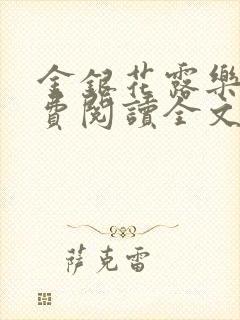 金銀花露樂
費閱讀全文
萨克雷